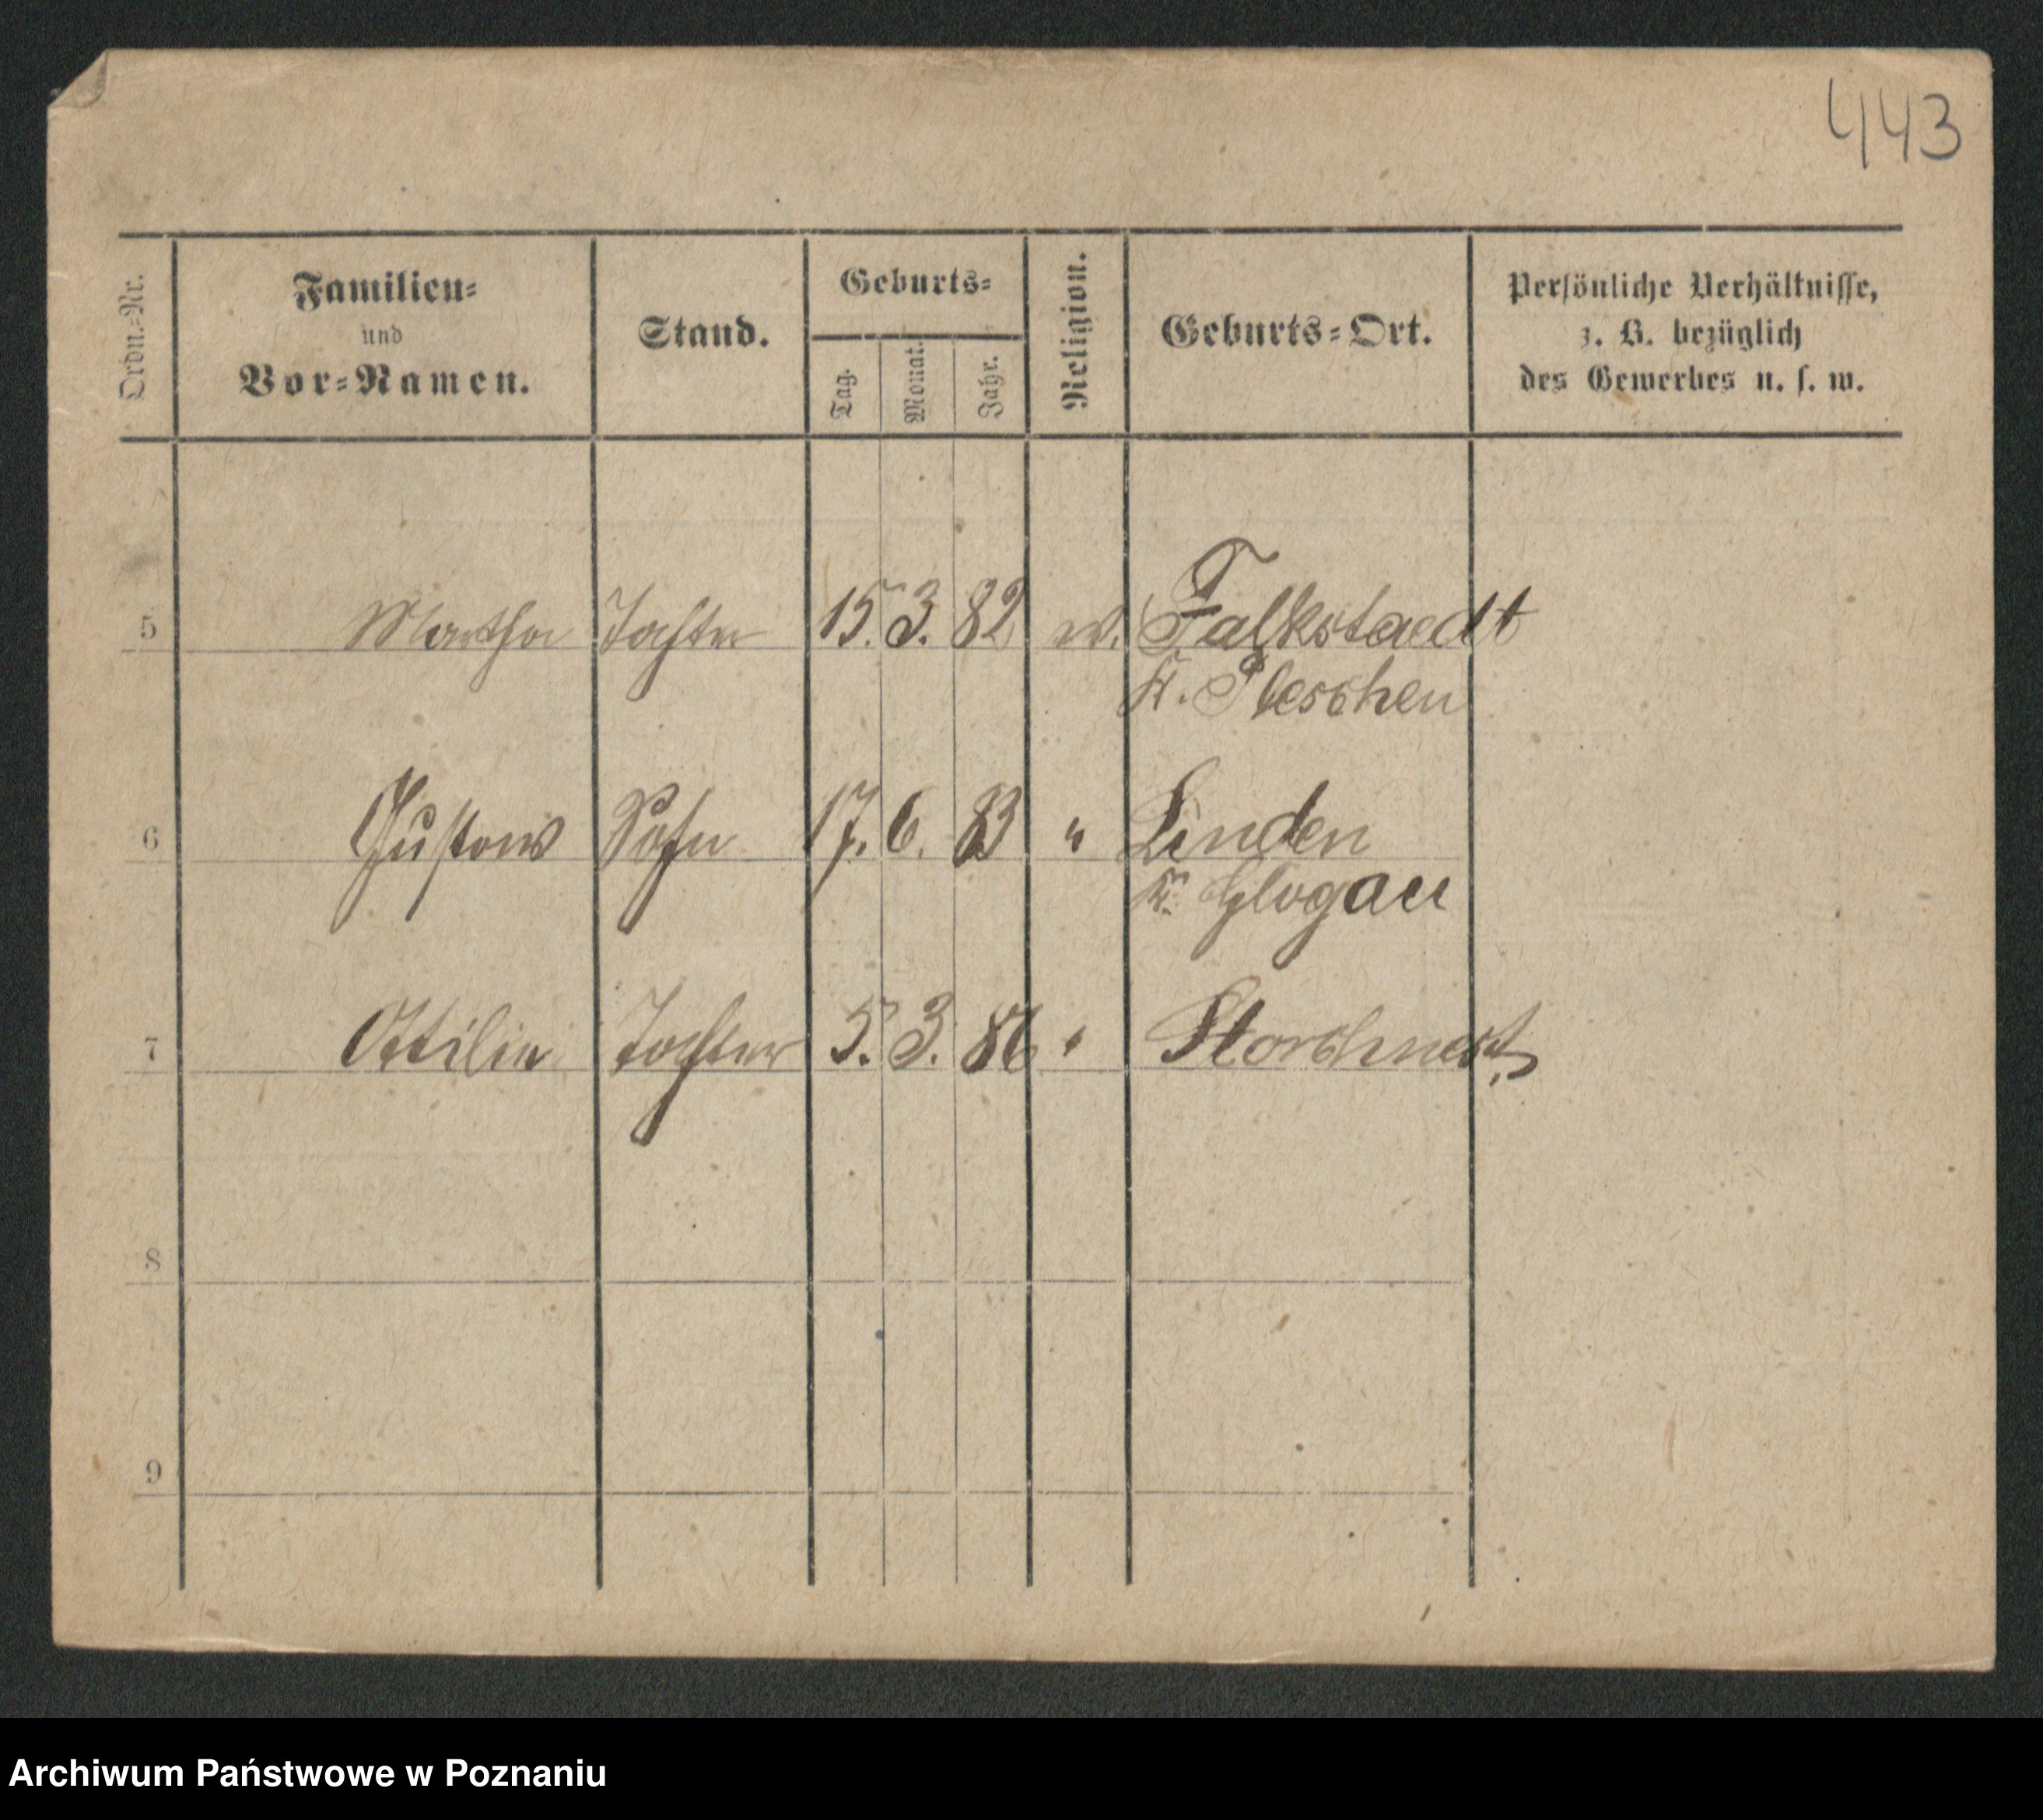 443
Ordn.-Nr.
Familien-
und
Vor-Namen.
Stand.
Geburts-
Tag.
Monat.
Jahr.
Religion.
Geburts-Ort.
Persönliche Verhältnisse,
z. B. bezüglich
des Gewerbes u. s. w.
5 Martha Tochter 15. 3. 82 Falkstaedt
K. Pleschen
6 Gustav Sohn 17. 6. 83 " Linden
K. Glogau
7 Ottilie Tochter 5. 3. 86 " Storchnest
8
9
Archiwum Państwowe w Poznaniu